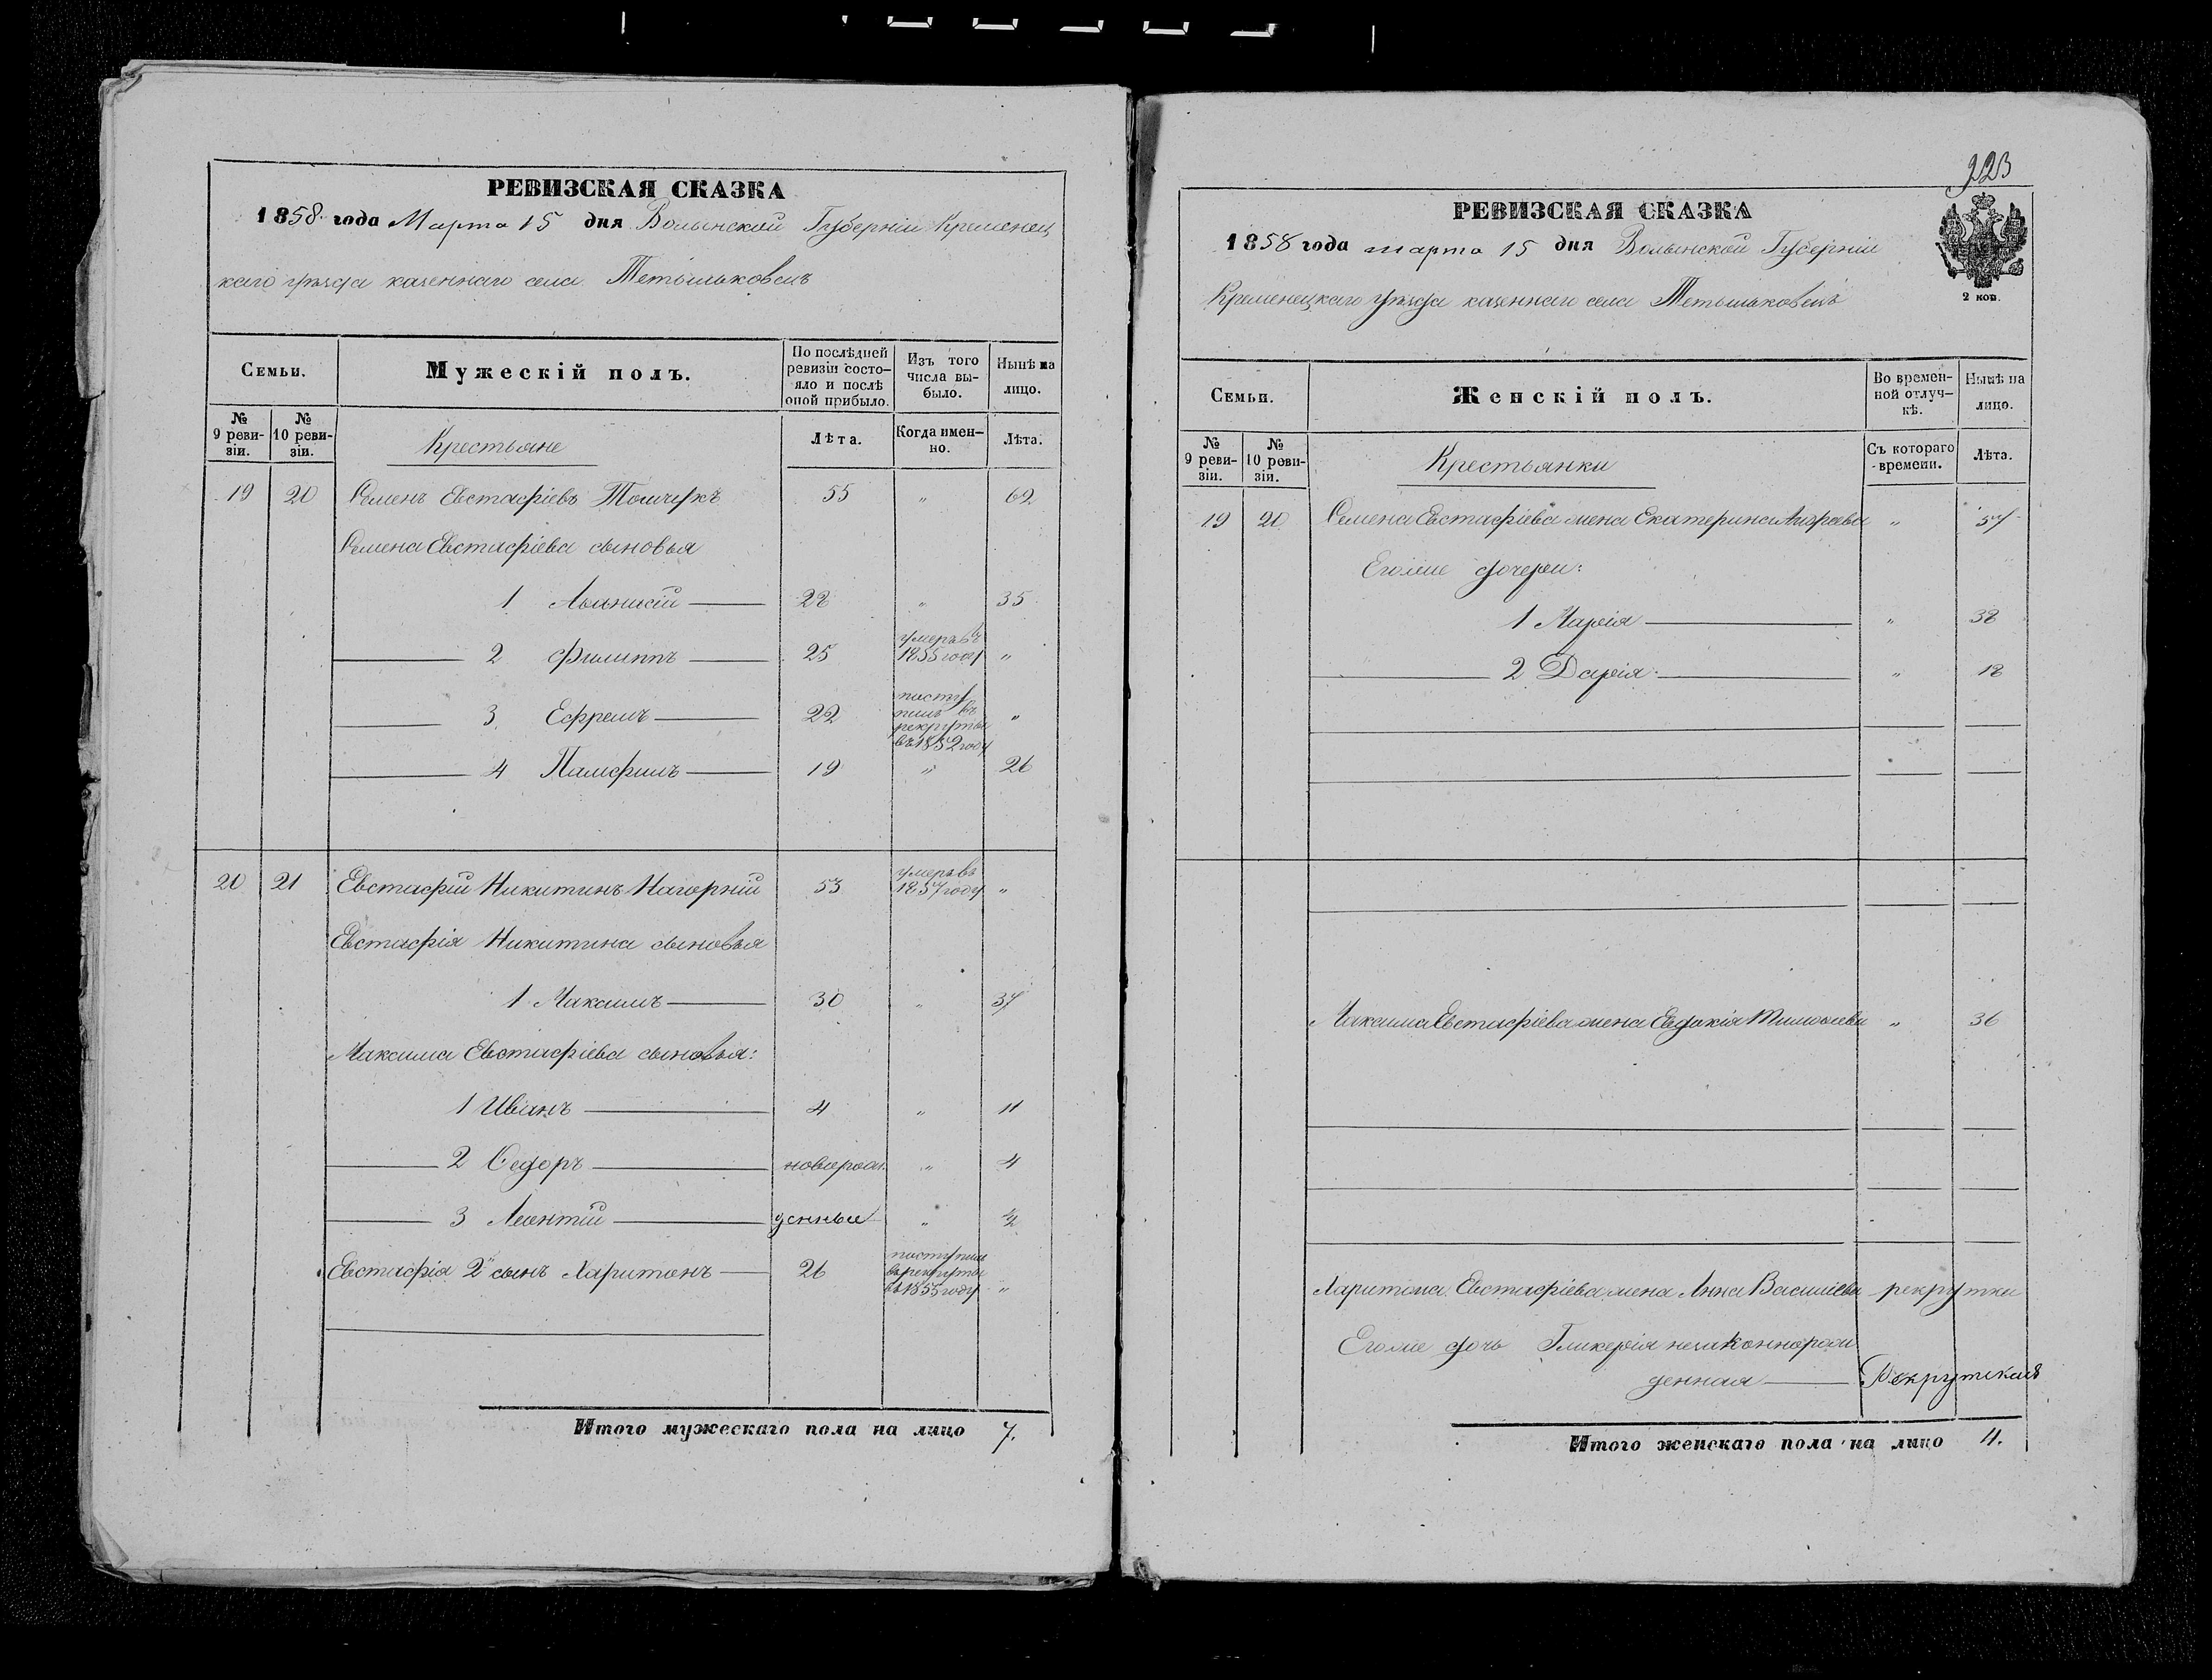 РЕВИЗСКАЯ СКАЗКА
1858 года Марта 15 дня Волынской Губерніи Кременец
каго уѣзда казеннаго села Тетыльковецъ
Семьи.
Мужескій полъ.
По послѣдней ревизіи состо-яло и послѣ оной прибыло.
Изъ того числа вы-было.
Нынѣ на лицо.
№ 9 реви-зіи.
№ 10 реви-зіи.
Крестьяне
Лѣта.
Когда имен-но.
Лѣта.
19 20 Семенъ Евстафіевъ 55 " 62
Семена Евстафіева сыновья
1 28 " 35
2 Филиппъ 25 умеръ въ 1855 году "
3 Ефремъ 22 поступилъ въ рекруты въ 1852 году "
4 Памфилъ 19 " 26
20 21 Евстафій Никитинъ Нагорній 53 умеръ въ 1857 году "
Евстафія Никитина сыновья
1 Максимъ 30 " 37
Максима Евстафіева сыновья:
1 Иванъ 4 " 11
2 Федоръ новорож " 4
3 Леонтій денные " ½
Евстафія 2й сынъ Харитонъ 26 поступилъ въ рекруты въ 1855 году "
Итого мужескаго пола на лицо 7.
223
РЕВИЗСКАЯ СКАЗКА
1858 года марта 15 дня Волынской Губерніи
Кременецкаго уѣзда казеннаго села Тетыльковецъ
2 коп.
Семьи.
Женскій полъ.
Во времен-ной отлуч-кѣ.
Нынѣ на лицо.
№ 9 реви-зіи.
№ 10 реви-зіи.
Крестьянки
Съ котораго времени.
Лѣта.
19 20 Семена Евстафіева жена Екатерина Андреева " 57
Его же дочери:
1 Марія " 38
2 Дарія " 18
Максима Евстафіева жена Евдокія Тимофеева " 36
Харитона Евстафіева жена Анна Василіева рекрутка
Его же дочь Гликерія незаконнорож
денная Рекрутская
Итого женскаго пола на лицо 4.